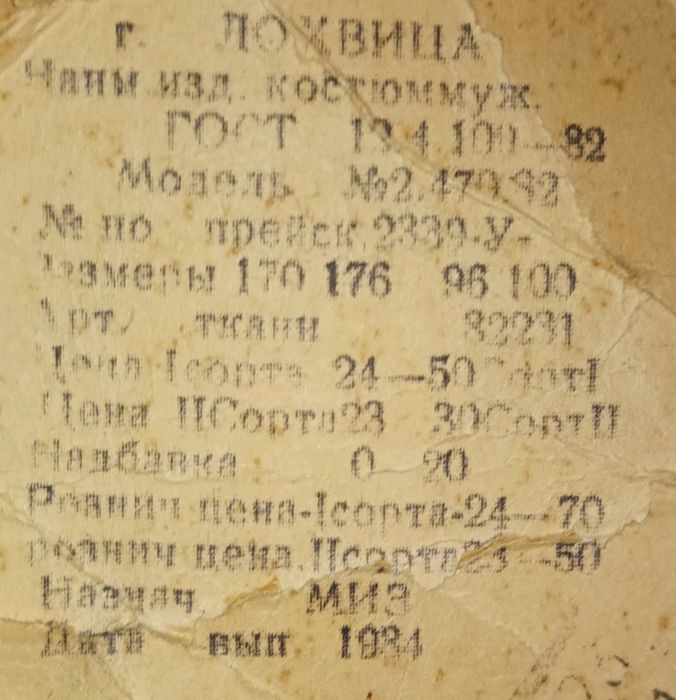 г. ЛОХВИЦА
Наим изд. костюммуж.
ГОСТ 12.4.100—82
Модель №2.479.82
№ по прейск.2339-У-
Размеры 170 176 96.100
Арт. ткани 82231
Цена Iсорта 24—50СортI
Цена IIСорта23 30СортII
Надбавка 0 20
Рознич цена-Iсорта-24—70
рознич цена.IIсорта23—50
Назнач. МИЗ
Дата вып 1984